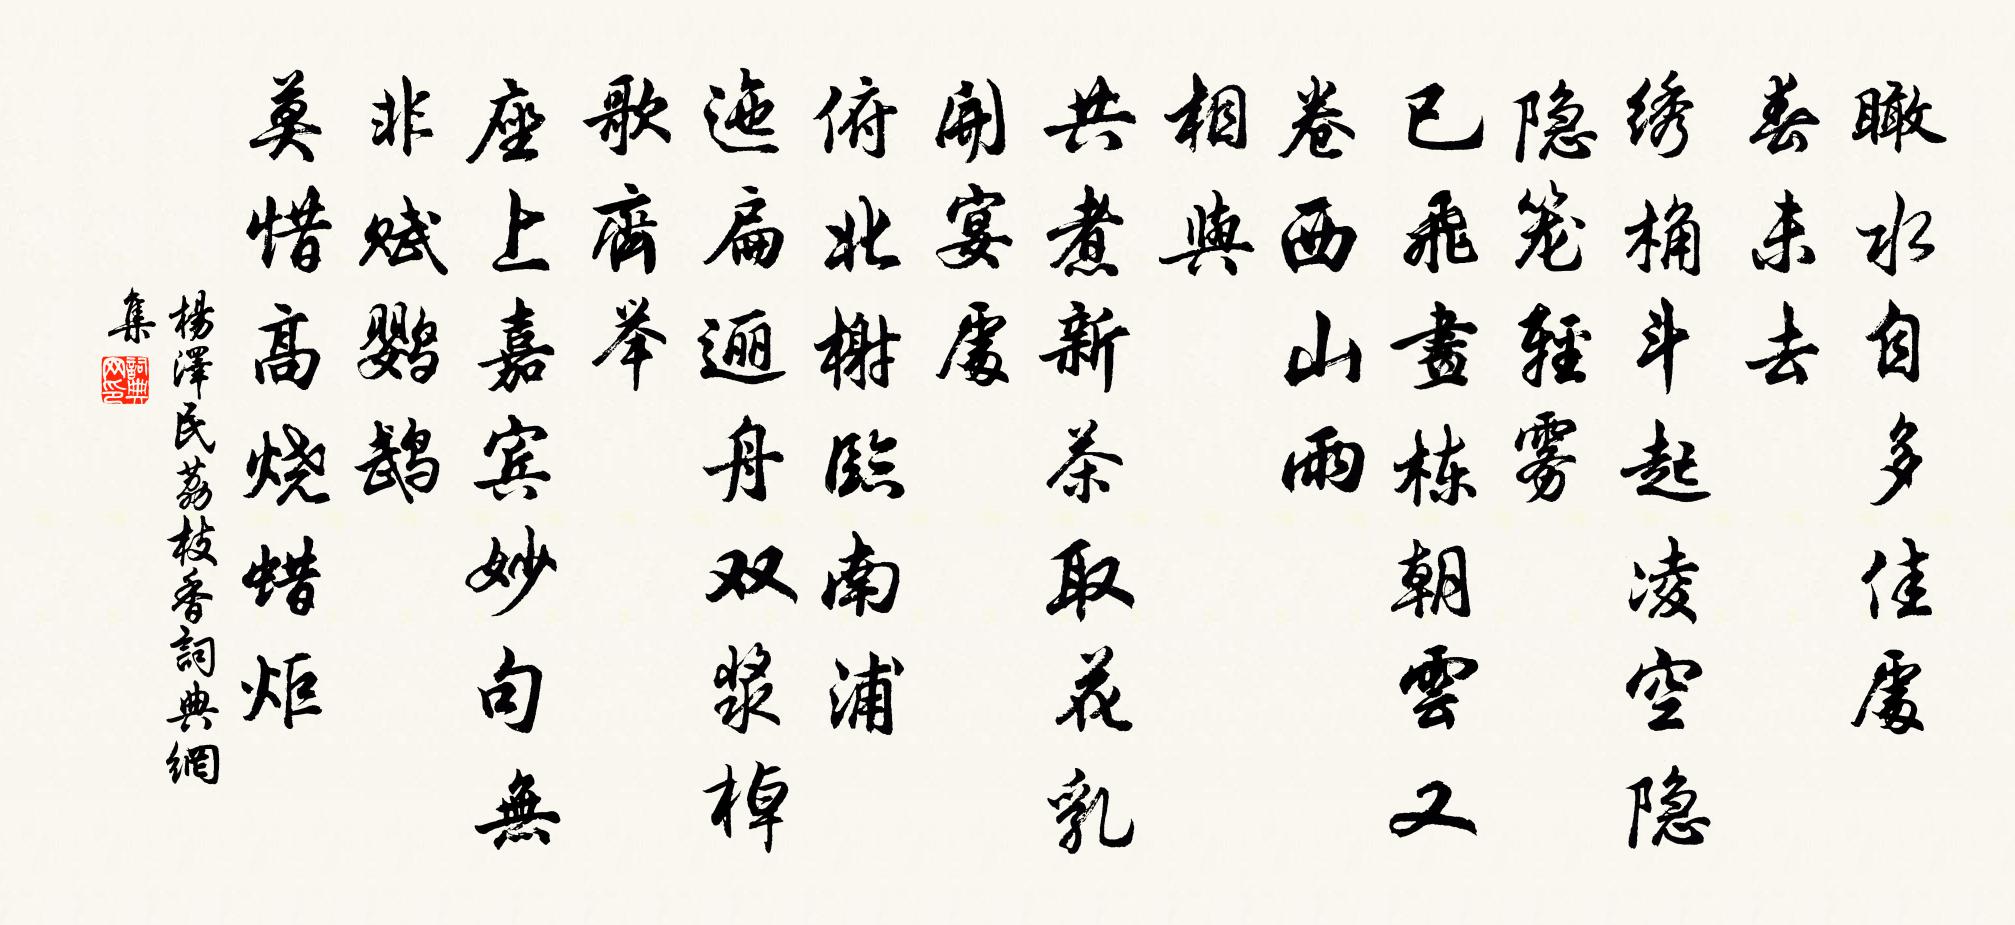 瞰水自多佳處
春未去
绣桷斗起凌空隐
隐笼輕雾
已飛畫栋朝雲又
卷西山雨
相與
共煮新茶取花乳
開宴處
俯北榭臨南浦
迤扁逦舟双桨棹
歌齊举
座上嘉宾妙句無
非赋鹦鹉
莫惜高烧蜡炬
楊澤民荔枝香詞典網
集
詞典網印